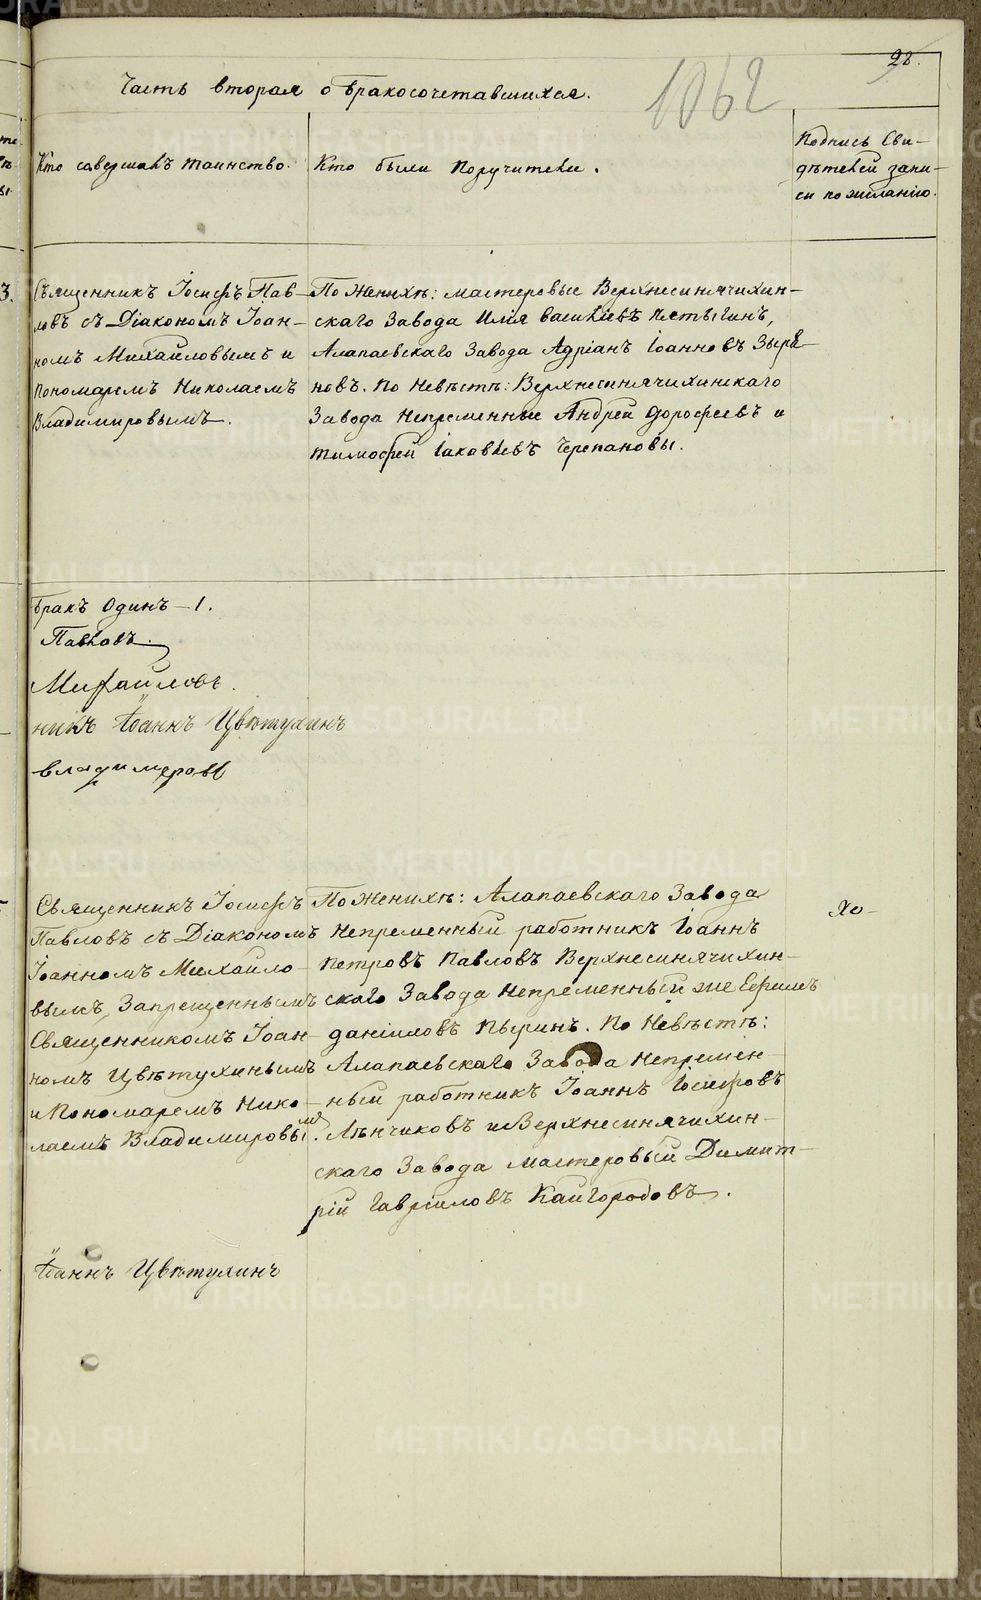 28.
Часть вторая о бракосочетавшихся.
1862
Кто совершалъ таинство.
Кто были поручители.
Подпись Сви-
дѣтелей запи-
си по желанію.
3.
Священникъ Іосифъ Пав-
ловъ съ Діакономъ Іоан-
номъ Михайловымъ и
Пономаремъ Николаемъ
Владимировымъ.
По Женихѣ: мастеровые Верхнесинячихин-
скаго Завода Илія Васильевъ Пятыгинъ,
Алапаевскаго Завода Адріанъ Іоанновъ Зыря-
новъ. По Невѣстѣ: Верхнесинячихинскаго
Завода Непременные Андрей Дорофеевъ и
Тимофей Іаковлевъ Черепановы.
Бракъ Одинъ – 1.
Павловъ.
Михайловъ.
никъ Іоаннъ Цвѣтухинъ
Владимеровъ
Священникъ Іосифъ
Павловъ съ Діакономъ
Іоанномъ Михайло-
вымъ, Запрещеннымъ
Священникомъ Іоан-
номъ Цвѣтухинымъ
и Пономаремъ Нико-
лаемъ Владимировымъ.
По Женихѣ: Алапаевскаго Завода
Непременный работникъ Іоаннъ
Петровъ Павловъ Верхнесинячихин-
скаго Завода Непременный же Ефимъ
Даніиловъ Пыринъ. По Невѣстѣ:
Алапаевскаго Завода Непремен-
ный работникъ Іоаннъ Іосифовъ
Лѣнчиковъ и Верхнесинячихин-
скаго Завода Мастеровый Димит-
рій Гавріиловъ Кайгородовъ.
Хо-
Іоаннъ Цвѣтухинъ
METRIKI.GASO-URAL.RU